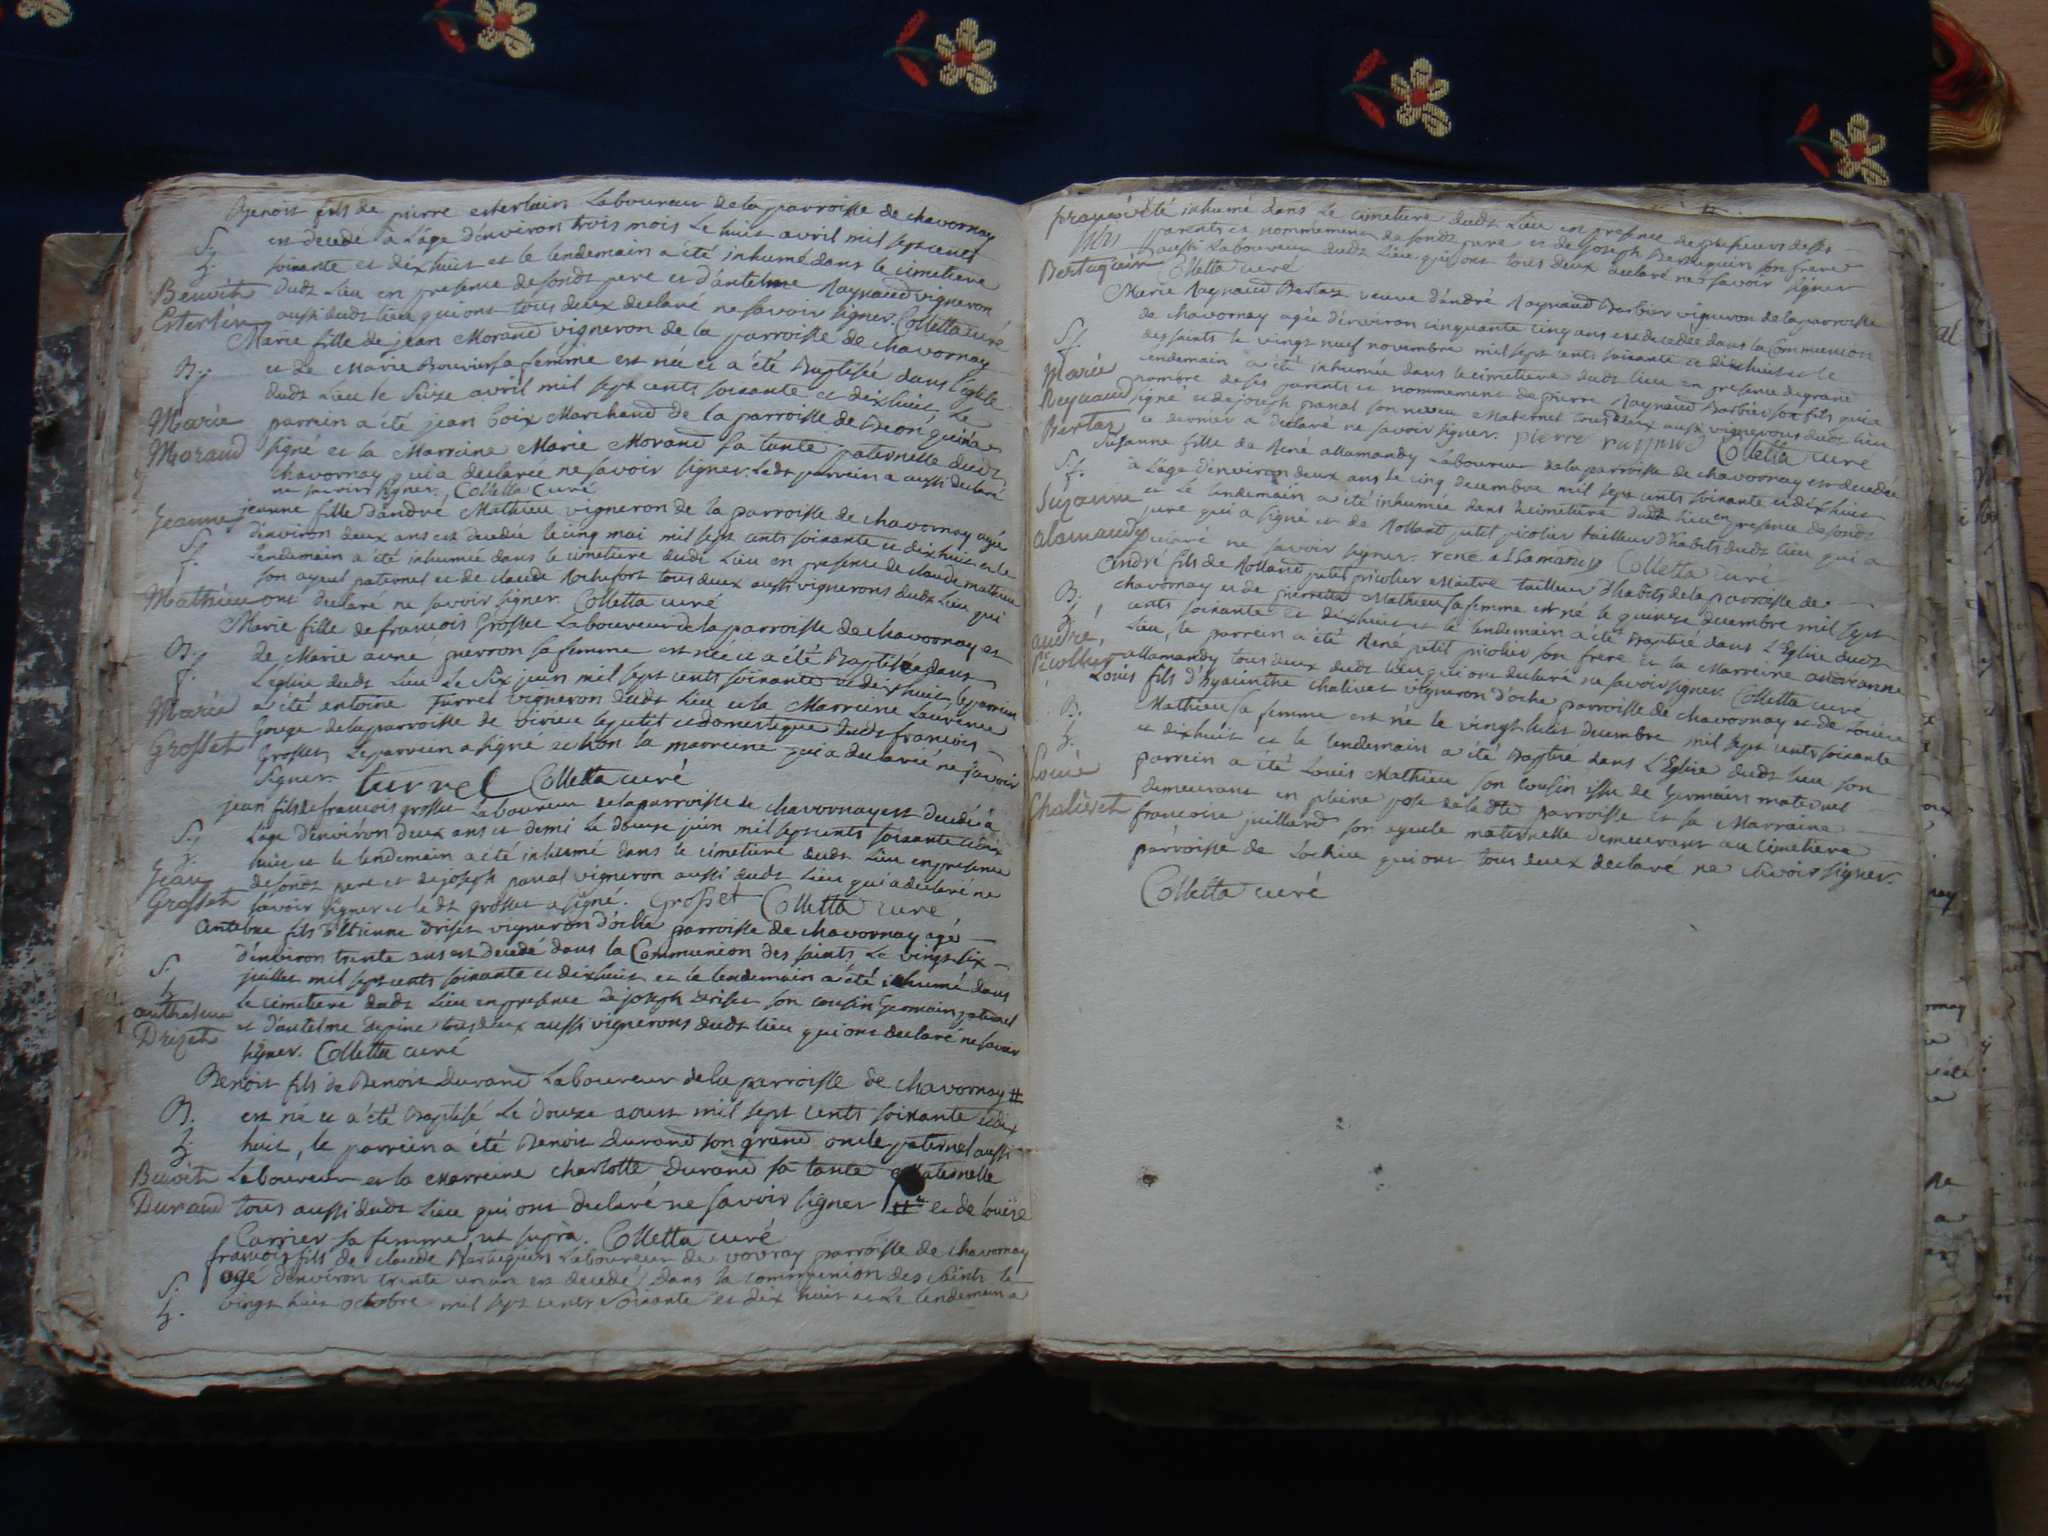 Benoit fils de pierre esterlain Laboureur de la parroisse de chavornay
S. est decedé à L'âge d'environ trois mois Le huit avril mil sept cents
soixante et dix huit et le lendemain a été inhumé dans le cimetiere
Benoit dudt Lieu en presence de sondt pere et d'antelme Raynaud vigneron
Esterlin aussi dudt lieu qui ont tous deux declaré ne savoir signer. Colletta curé
Marie fille de jean Morand vigneron de la parroisse de chavornay
B. et De Marie Bouvier sa femme est née et a été Baptisée dans l'église
dudt Lieu le Seize avril mil sept cents soixante et dix huit, Le
Marie parrein a été jean Marchand de la parroisse de Béon qui a
Morand signé et la Marreine Marie Morand sa tante paternelle dudt
chavornay qui a declaree ne savoir signer. Ledt parrein a aussi declaré
ne savoir signer. Colletta curé
Jeanne jeanne fille d'andré Mathieu vigneron de la parroisse de chavornay agée
S. d'environ deux ans est decedée le cinq mai mil sept cents soixante et dix huit et le
lendemain a été inhumée dans le cimetiere dudt Lieu en presence de claude mathieu
son ayeul paternel et de claude Rochefort tous deux aussi vignerons dudt Lieu qui
Mathieu ont declaré ne savoir signer. Colletta curé
Marie fille de francois Grosset Laboureur de la parroisse de chavornay et
B. de Marie anne perron sa femme est née et a été Baptisée dans
L'eglise dudt Lieu Le Six juin mil sept cents soixante et dix huit, le parrein
Marie a été antoine Turrel vigneron dudt Lieu et la Marreine Laurence
Grosset Gouge de la parroisse de virieu le petit et domestique dudt francois
Grosset, Le parrein a signé et non la marreine qui a declarée ne savoir
signer. turrel Colletta curé
jean fils de francois grosset Laboureur de la parroisse de chavornay est decedé à
S. L'âge d'environ deux ans et demi Le douze juin mil sept cents soixante et dix
huit et le lendemain a été inhumé dans le cimetiere dudt Lieu en presence
Jean de sondt pere et de joseph panal vigneron aussi dudt Lieu qui a declaré ne
Grosset savoir signer et le dt grosset a signé. Grosset Colletta curé
Antelme fils d'Etienne Driset vigneron d'oche parroisse de chavornay agé
S. d'environ trente ans est decedé dans la Communion des saints Le vingt six
juillet mil sept cents soixante et dix huit et le lendemain a été inhumé dans
anthelme Le cimetiere dudt Lieu en presence de joseph Driset son cousin Germain paternel
Driset et d'antelme Depine tous deux aussi vignerons dudt lieu qui ont declaré ne savoir
signer. Colletta curé
Benoit fils de Benoit Durand Laboureur de la parroisse de chavornay #
B. est né et a été Baptisé Le douze aoust mil sept cents soixante et dix
huit, le parrein a été Benoit Durand son grand oncle paternel aussi
Benoit Laboureur et la Marreine charlotte Durand sa tante Maternelle
Durand tous aussi dudt Lieu qui ont declaré ne savoir signer # et de Louise
Carrier sa femme ut suprà. Colletta curé
francois fils de claude Bertuguin Laboureur de vovray parroisse de chavornay
S. agé d'environ trente un an est decedé dans la communion des saints le
vingt huit octobre mil sept cents soixante et dix huit et Le lendemain a
francois été inhumé dans Le cimetiere dudt Lieu en presence de plusieurs de ses
parents et nommement de sondt pere et de joseph Bertuguin son frere
aussi Laboureur dudt Lieu qui ont tous deux declaré ne savoir signer
Bertuguin Colletta curé
Marie Raynaud Bertaz veuve d'andré Raynaud Barbier vigneron de la parroisse
de chavornay agée d'environ cinquante cinq ans est decedée dans la Communion
S. des saints le vingt neuf novembre mil sept cents soixante et dix huit et le
Marie lendemain a été inhumée dans le cimetiere dudt lieu en presence de grand
Reynaud nombre de ses parents et nommement de pierre Raynaud Barbier son fils qui a
signé et de joseph panal son neveu Maternel tous deux aussi vignerons dudt lieu
Bertaz ce dernier a declaré ne savoir signer. pierre raynaud Colletta curé
Suzanne fille de René allamandy Laboureur de la parroisse de chavornay est decedée
S. à L'âge d'environ deux ans le cinq decembre mil sept cents soixante et dix huit
Suzanne et Le lendemain a été inhumée dans le cimetiere dudt lieu en presence de sondt
pere qui a signé et de Rolland petit picolier tailleur d'habits dudt lieu qui a
alamandy declaré ne savoir signer. rené allamandy Colletta curé
André fils de Rolland petit picolier Maitre tailleur d'habits de la parroisse de
B. chavornay et de pierrette Mathieu sa femme est né le quinze decembre mil sept
cents soixante et dix huit et le lendemain a été Baptisé dans L'Eglise dudt
andré, Lieu, le parrein a été René petit picolier son frere et la Marreine andreanne
Picollier allamandy tous deux dudt lieu qui ont declaré ne savoir signer. Colletta curé
Louis fils d'hyacinthe chaliver vigneron d'oche parroisse de chavornay et de Louise
B. Mathieu sa femme est né le vingt huit decembre mil sept cents soixante
et dix huit et le lendemain a été Baptisé dans L'Eglise dudt lieu son
Louis parrein a été Louis Mathieu son cousin issu de Germain maternel
demeurant en pleine de la dte parroisse et sa Marraine
Chalivet francoise juillard son ayeule maternelle demeurant au cimetiere
parroisse de Lochieu qui ont tous deux declaré ne savoir signer.
Colletta curé